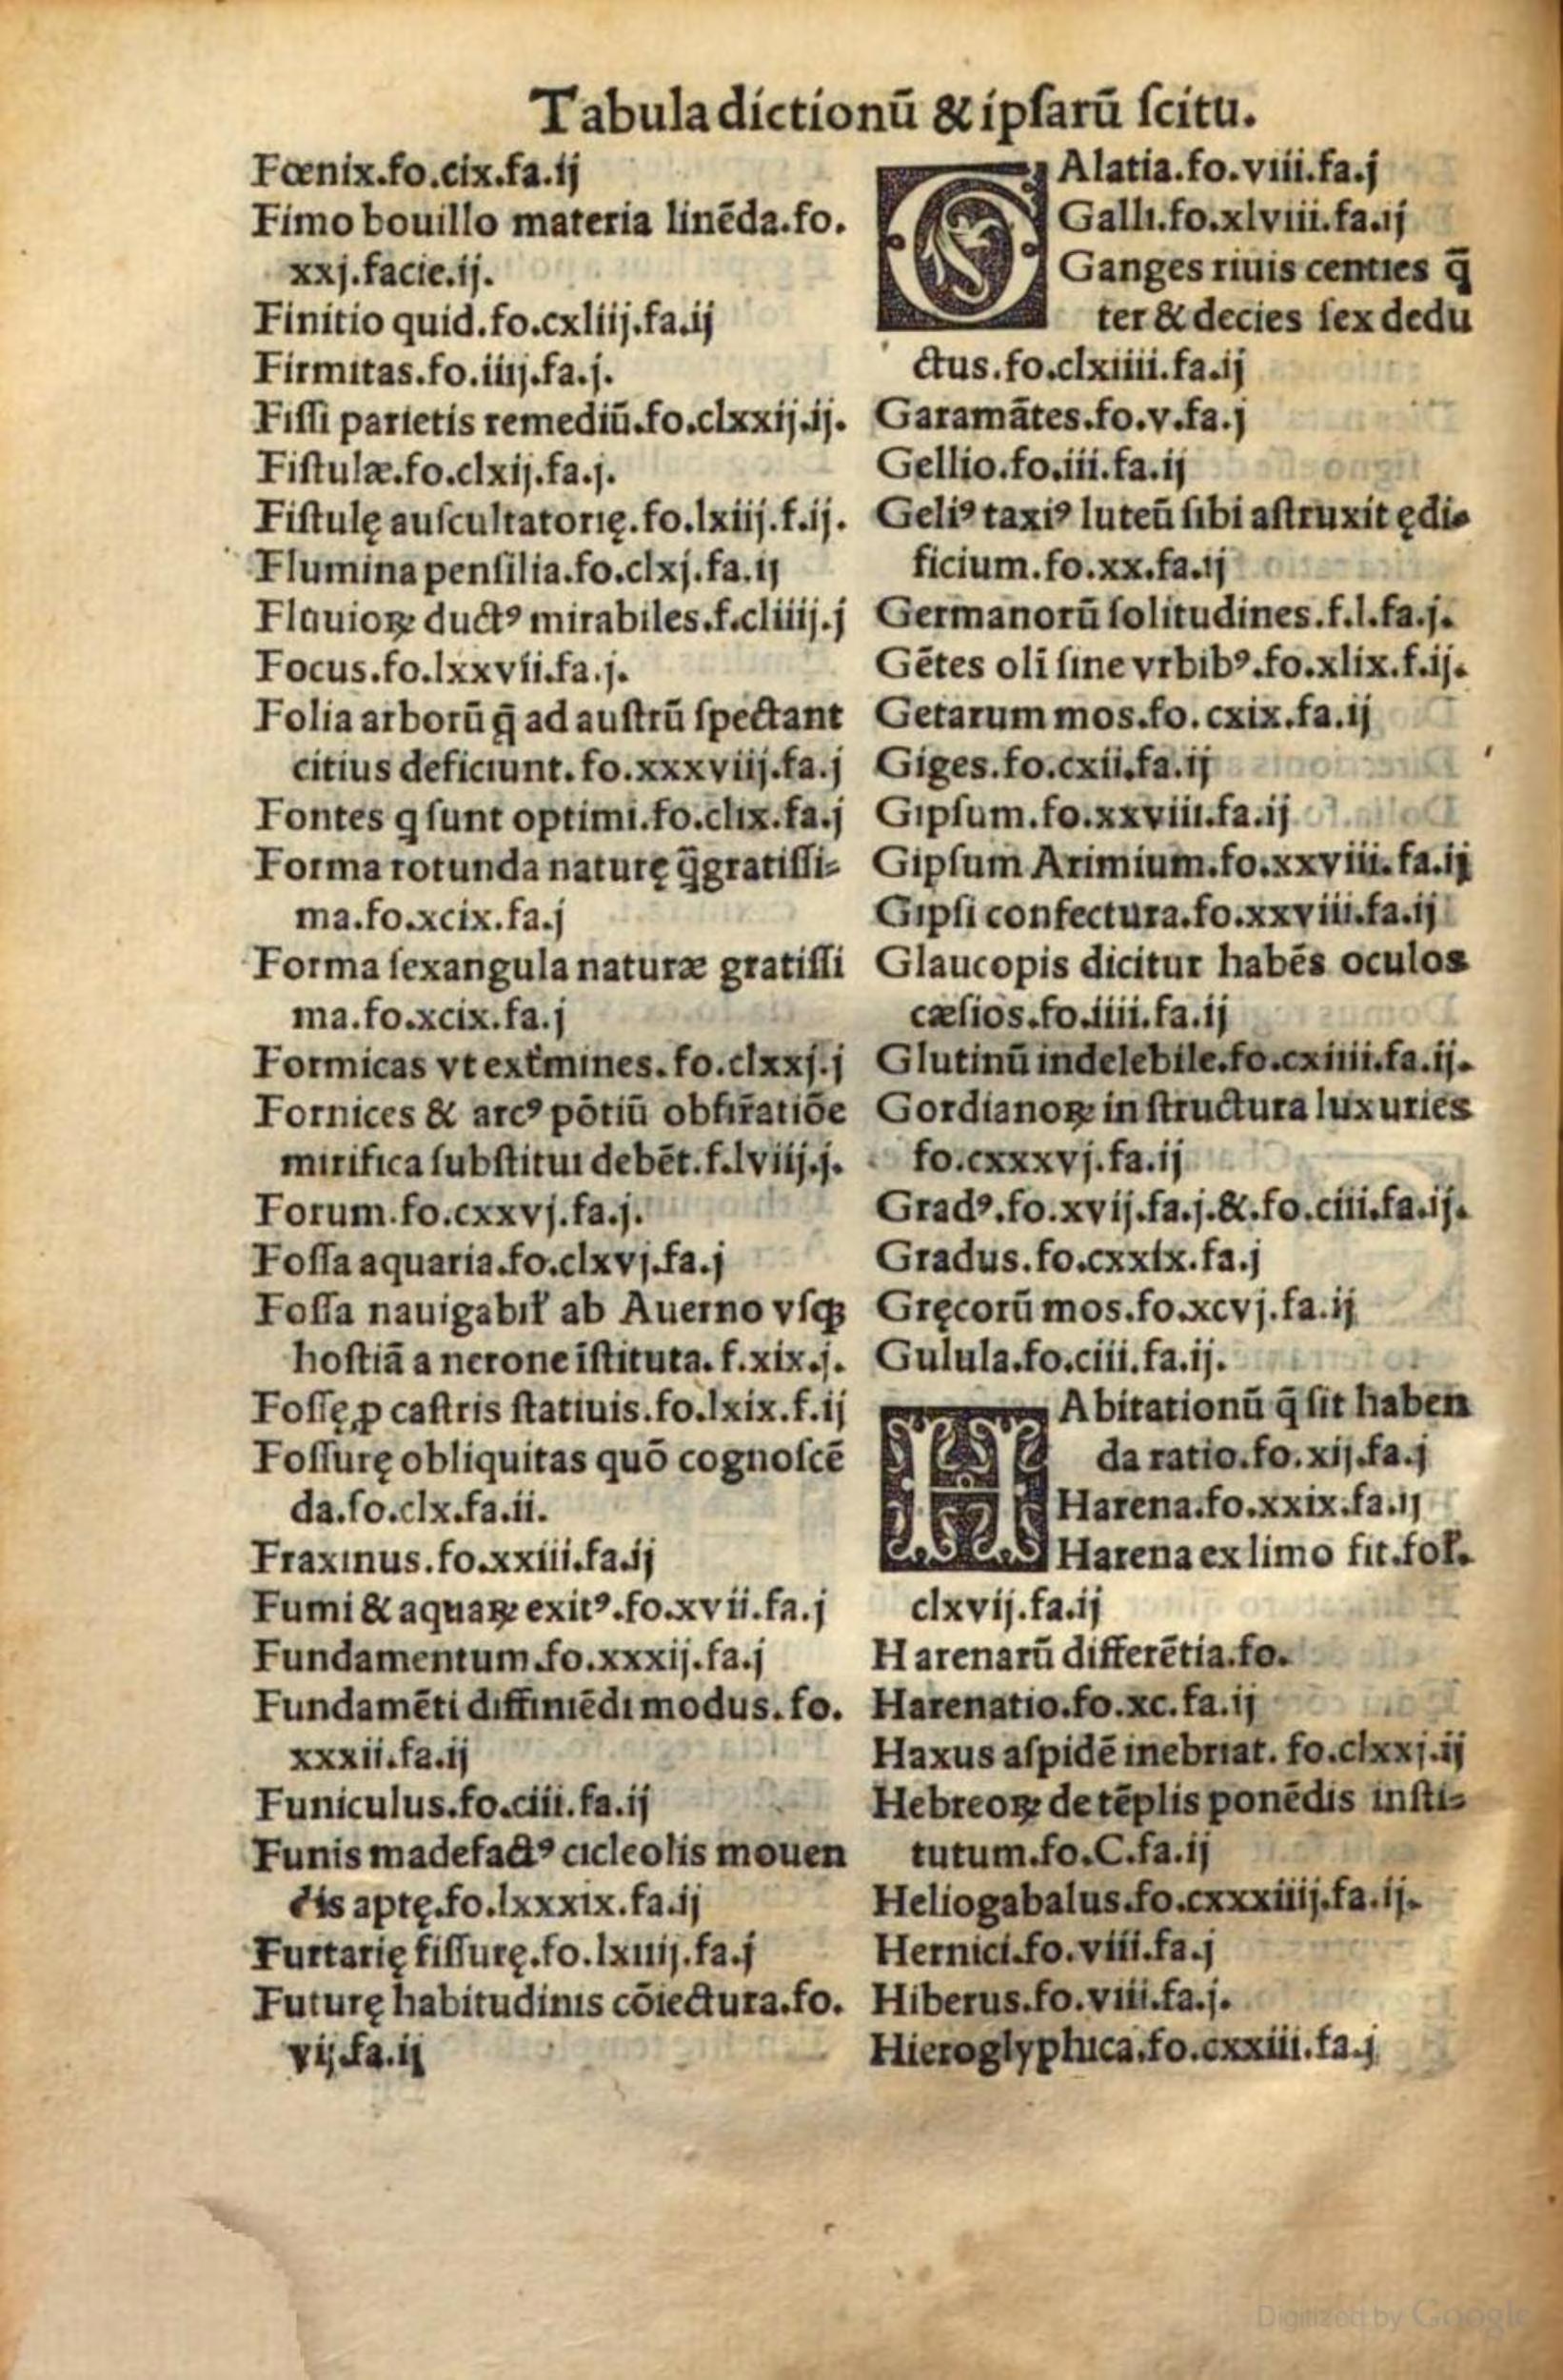 Tabula dictionū & ipſarū ſcitu.
Fœnix.fo.cix.fa.ij
Fimo bouillo materia linēda.fo.
xxj.facie.ij.
Finitio quid.fo.cxliij.fa.ij
Firmitas.fo.iiij.fa.j.
Fiſſi parietis remediū.fo.clxxij.ij.
Fiſtulæ.fo.clxij.fa.j.
Fiſtulę auſcultatorię.fo.lxiij.f.ij.
Flumina penſilia.fo.clxj.fa.ij
Fluuioꝝ ductꝰ mirabiles.f.cliiij.j
Focus.fo.lxxvii.fa.j.
Folia arborū q̄ ad auſtrū ſpectant
citius deficiunt.fo.xxxviij.fa.j
Fontes q ſunt optimi.fo.clix.fa.j
Forma rotunda naturę q̄gratiſſi-
ma.fo.xcix.fa.j
Forma ſexangula naturæ gratiſſi
ma.fo.xcix.fa.j
Formicas vt exťmines.fo.clxxj.j
Fornices & arcꝰ pōtiū obfir̃atiōe
mirifica ſubſtitui debēt.f.lviij.j.
Forum.fo.cxxvj.fa.j.
Foſſa aquaria.fo.clxvj.fa.j
Foſſa nauigabil̃ ab Auerno vſqꝫ
hoſtiā a nerone īſtituta.f.xix.j.
Foſſę ꝓ caſtris ſtatiuis.fo.lxix.f.ij
Foſſurę obliquitas quō cognoſcē
da.fo.clx.fa.ii.
Fraxinus.fo.xxiii.fa.ij
Fumi & aquaꝝ exitꝰ.fo.xvii.fa.j
Fundamentum.fo.xxxij.fa.j
Fundamēti diffiniēdi modus.fo.
xxxii.fa.ij
Funiculus.fo.ciii.fa.ij
Funis madefactꝰ cicleolis mouen
dis aptę.fo.lxxxix.fa.ij
Furtarię fiſſurę.fo.lxiiij.fa.j
Futurę habitudinis cōiectura.fo.
vij.fa.ij
GAlatia.fo.viii.fa.j
Galli.fo.xlviii.fa.ij
Ganges riuis centies q̄
ter & decies ſex dedu
ctus.fo.clxiiii.fa.ij
Garamātes.fo.v.fa.j
Gellio.fo.iii.fa.ij
Geliꝰ taxiꝰ luteū ſibi aſtruxit ędi-
ficium.fo.xx.fa.ij
Germanorū ſolitudines.f.l.fa.j.
Gētes oli ſine vrbibꝰ.fo.xlix.f.ij.
Getarum mos.fo.cxix.fa.ij
Giges.fo.cxii.fa.ij
Gipſum.fo.xxviii.fa.ij
Gipſum Arimium.fo.xxviii.fa.ij
Gipſi confectura.fo.xxviii.fa.ij
Glaucopis dicitur habēs oculos
cæſios.fo.iiii.fa.ij
Glutinū indelebile.fo.cxiiii.fa.ij.
Gordianoꝝ in ſtructura luxuries
fo.cxxxvj.fa.ij
Gradꝰ.fo.xvij.fa.j.&.fo.ciii.fa.ij.
Gradus.fo.cxxix.fa.j
Gręcorū mos.fo.xcvj.fa.ij
Gulula.fo.ciii.fa.ij.
HAbitationū q̄ ſit haben
da ratio.fo.xij.fa.j
Harena.fo.xxix.fa.ij
Harena ex limo fit.fol̃.
clxvij.fa.ij
Harenarū differētia.fo.
Harenatio.fo.xc.fa.ij
Haxus aſpidē inebriat.fo.clxxj.ij
Hebreoꝝ de tēplis ponēdis inſti-
tutum.fo.C.fa.ij
Heliogabalus.fo.cxxxiiij.fa.ij.
Hernici.fo.viii.fa.j
Hiberus.fo.viii.fa.j.
Hieroglyphica.fo.cxxiii.fa.j
Digitized by Google